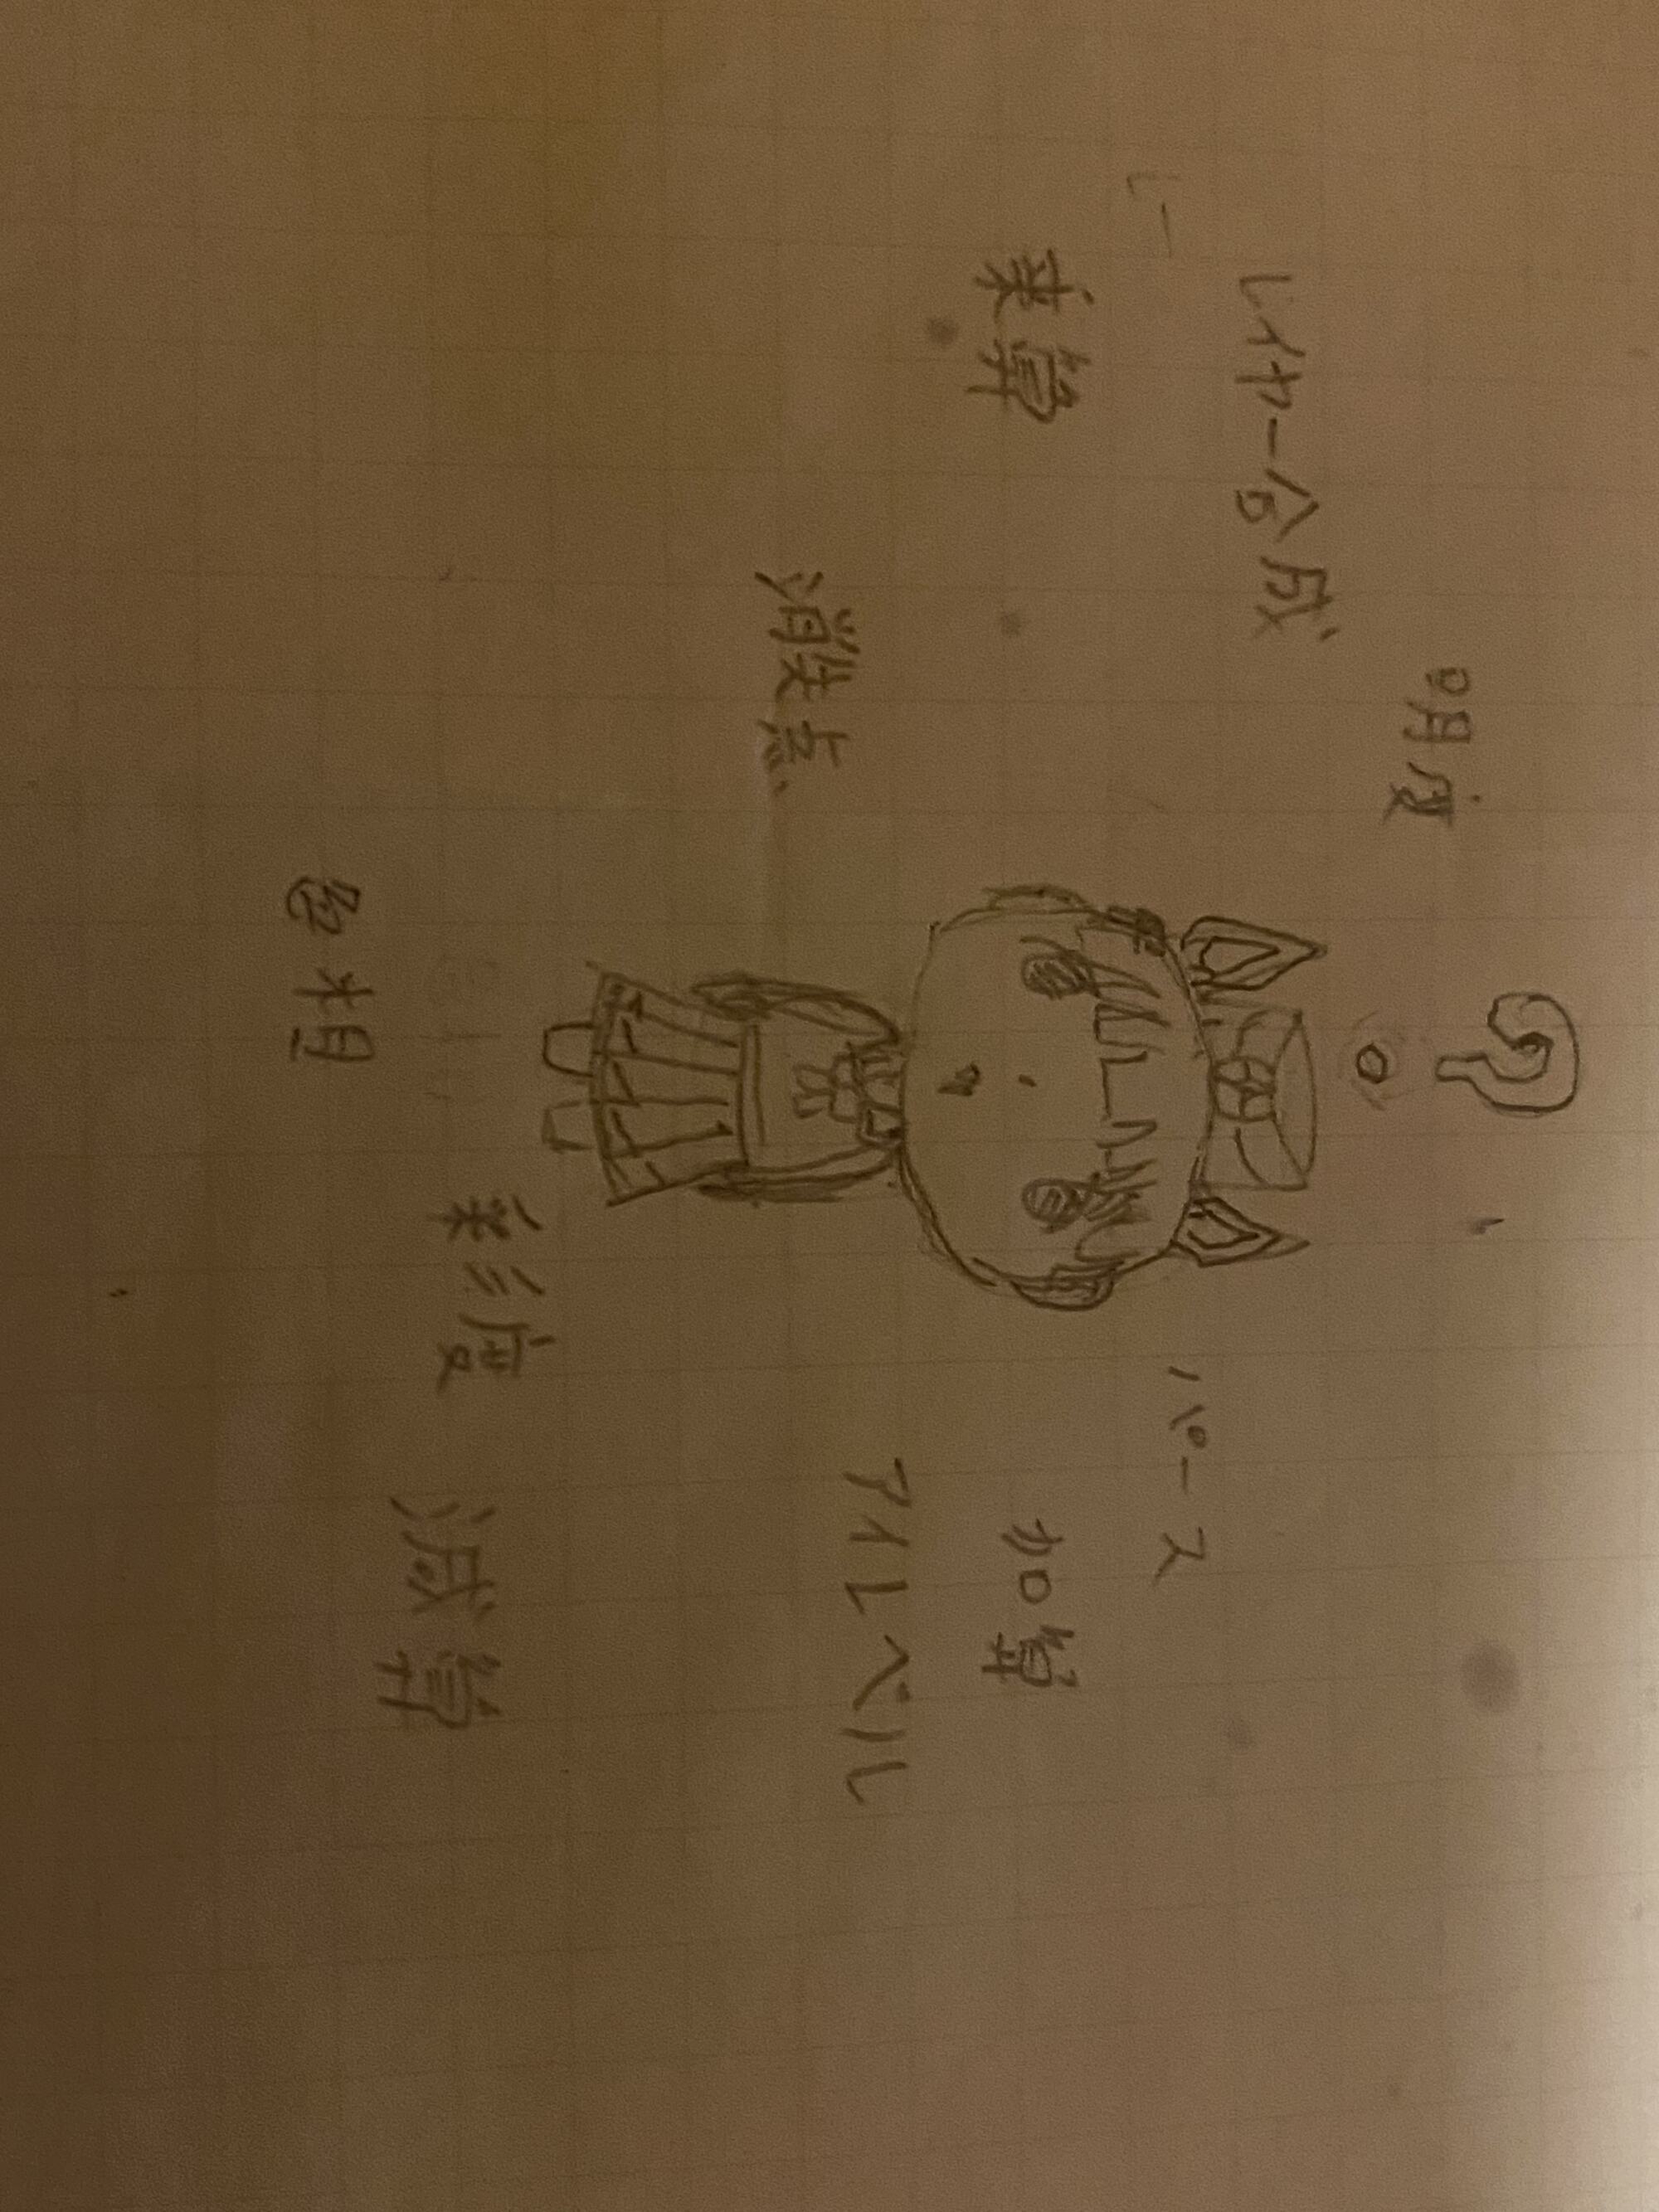 ?
明度
レイヤー合成
レー
パース
乗算
加算
アイレベル
消失点
彩度
減算
色相